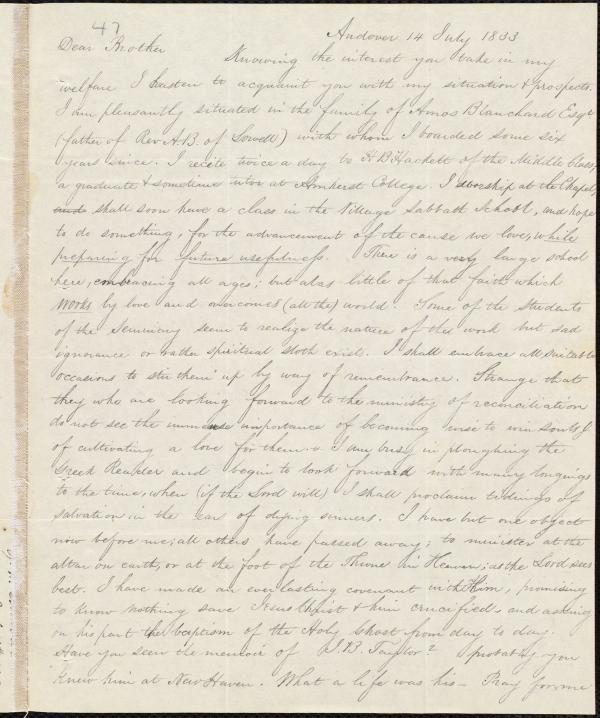 47
Andover 14 July 1833
Dear Brother
Knowing the interest you take in my
welfare I hasten to acquaint you with my situation & prospects.
I am pleasantly situated in the family of Amos Blanchard Esqr
(father of Rev A.B. of Lowell) with whom I boarded some six
years since. I recite twice a day to H B Hackett of the Middle Class,
a graduate & sometime tutor at Amherst College. I worship at the Chapel,
and shall soon have a class in the Village Sabbath School, and hope
to do something, for the advancement of the cause we love, while
preparing for future usefulness. There is a very large school
here, embracing all ages; but alas little of that faith which
works by love and overcomes (all the) world. Some of the students
of the Seminary seem to realize the nature of the work but sad
ignorance or rather spiritual sloth exist. I shall embrace all suitable
occasions to stir them up by way of remembrance. Strange that
they who are looking forward to the ministry of reconciliation
do not see the immense importance of becoming wise to win souls &
of cultivating a love for them. I am busy in ploughing the
Greek Reader and begin to look forward with many longings
to the time, when (if the Lord will) I shall proclaim tidings of
salvation in the ear of dying sinners. I have but one object
now before me; all others have passed away; to minister at the
altar on earth, or at the foot of the Throne in Heaven; as the Lord sees
best. I have made an everlasting covenant with Him, promising
to know nothing save Jesus Christ & him crucified, and asking
on his part the baptism of the Holy Ghost from day to day.
Have you seen the memoir of J.B. Taylor? Probably you
knew him at New Haven. What a life was his – Pray for me